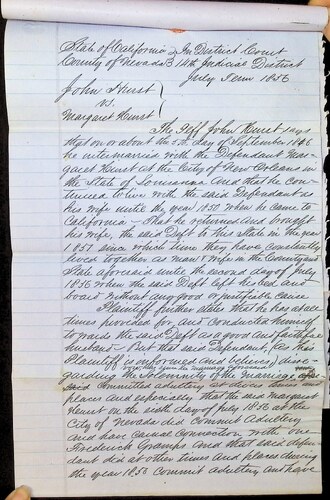 State of California } In District Court
County of Nevada } 14th Judicial District
July Term 1856
John Hurst }
vs. }
Margaret Hurst }
The Plff John Hurst says
that on or about the 5th day of September 1846
he intermarried with the Defendant Mar-
garet Hurst at the City of New Orleans in
the State of Louisiana and that he con-
tinued to live with the said Defendant as
his wife until the year 1850 when he came to
California – that he returned and brought
his wife, the said Deft to this State in the year
1851 since which time they have constantly
lived together as man & wife in the County and
State aforesaid until the second day of July
1856 when the said Deft left his bed and
board without any good or justifiable cause
Plaintiff further states that he has at all
times provided for and conducted himself
towards the said Deft as a good and faithful
husband – But that said Defendant, (as this
Plaintiff is informed and believes) disre-
garding the solemnity of the marriage
said committed adultery at divers times and
places and especially that the said Margaret
Hurst on the sixth day of July 1856 at the
City of Nevada did commit Adultery
and have carnal connection with one
Frederick Gramps and that said defen-
dant did at other times and places during
the year 1856 commit adultery and have